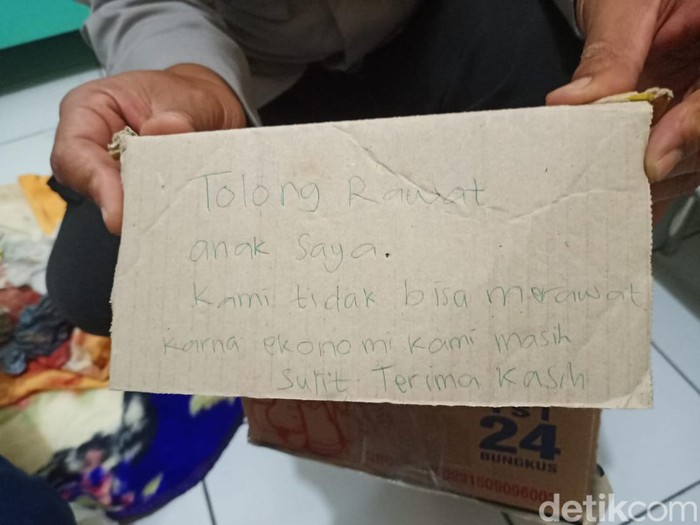 Tolong Rawat
anak saya.
kami tidak bisa merawat
karna ekonomi kami masih
sulit Terima kasih
ISI
24
BUNGKUS
detikcom